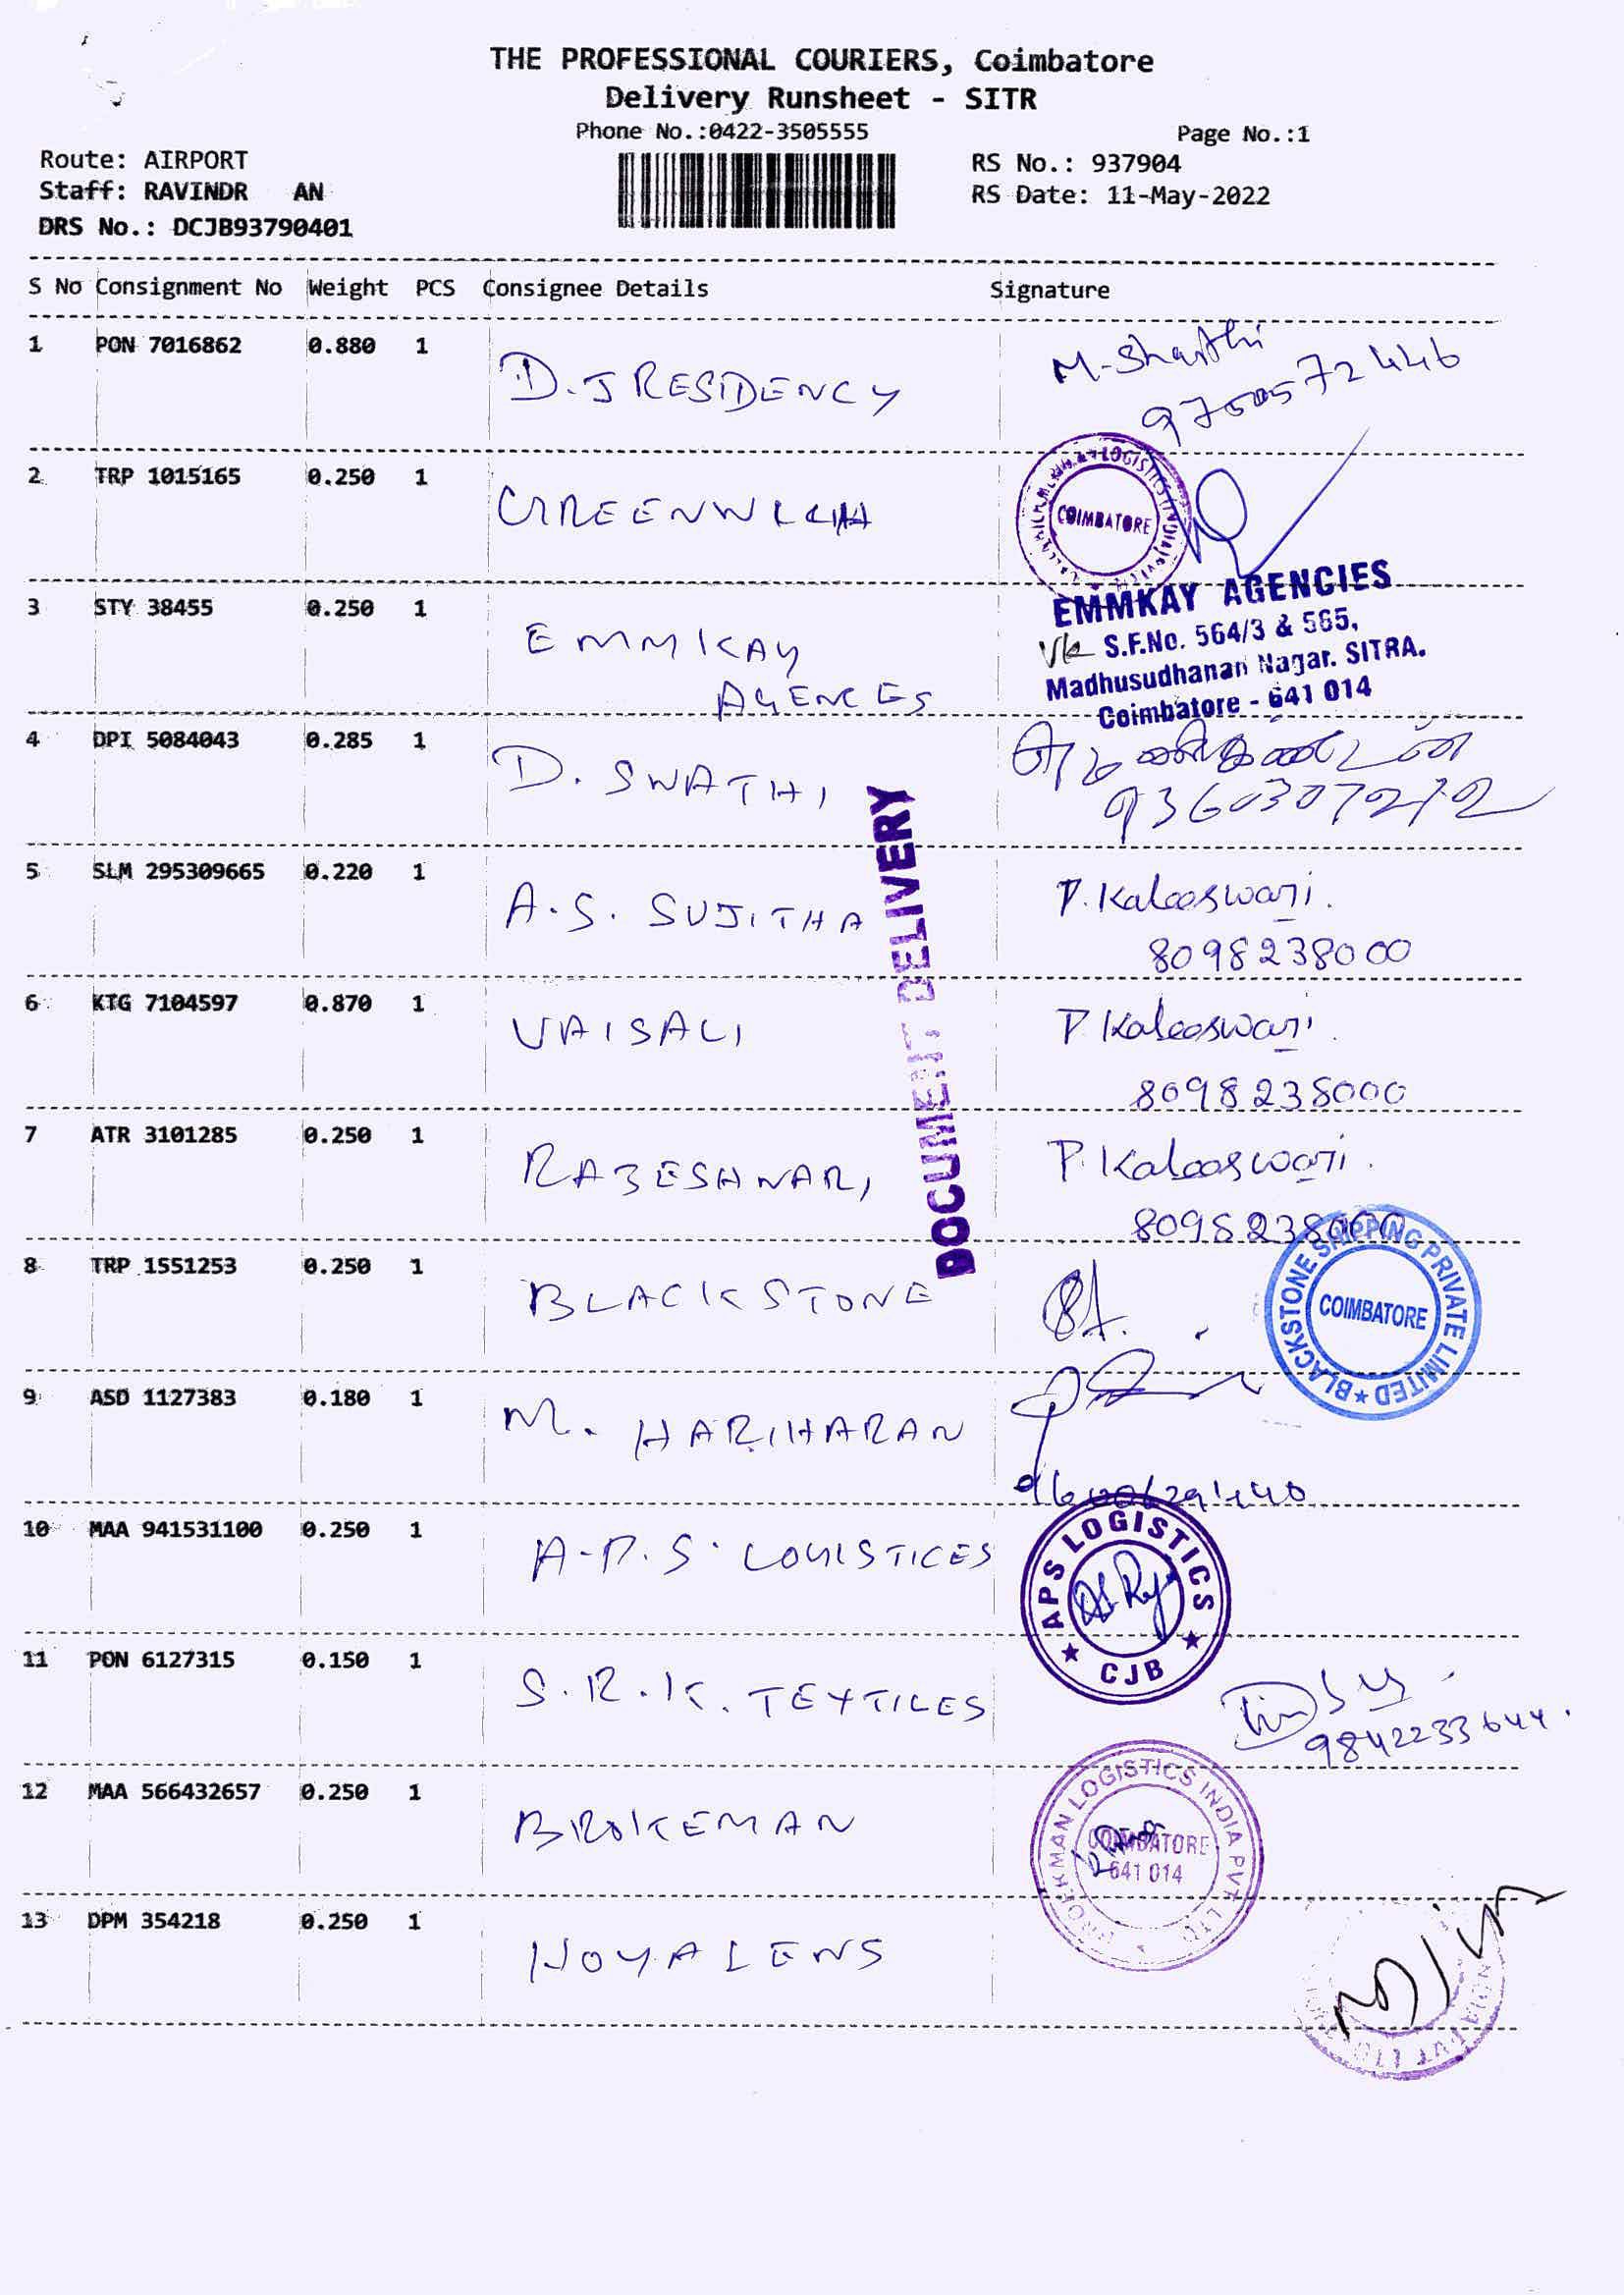 THE PROFESSIONAL COURIERS, Coimbatore
Delivery Runsheet - SITR
Phone No.:0422-3505555
Page No.:1
Route: AIRPORT
RS No.: 937904
Staff: RAVINDR AN
RS Date: 11-May-2022
DRS No.: DCJB93790401
S No Consignment No Weight PCS Consignee Details Signature
1 PON 7016862 0.880 1 D.J RESIDENCY M-Shanthi
2 TRP 1015165 0.250 1
COIMBATORE
3 STY 38455 0.250 1 EMMKAY
AGENCES
EMMKAY AGENCIES
S.F.No. 564/3 & 565,
Madhusudhanan Nagar. SITRA.
Coimbatore - 641 014
4 DPI 5084043 0.285 1 D. SWATHI
5 SLM 295309665 0.220 1 A.S. SUJITHA P. Kaleeswari.
8098238000
6 KTG 7104597 0.870 1 VAISALI P Kaleeswari.
8098238000
7 ATR 3101285 0.250 1 RAJESHWARI P. Kaleeswari.
8098238000
DOCUMENT DELIVERY
8 TRP 1551253 0.250 1 BLACKSTONE
BLACKSTONE SHIPPING PRIVATE LIMITED
COIMBATORE
9 ASD 1127383 0.180 1 M. HARIHARAN
10 MAA 941531100 0.250 1 A.P.S. LOGISTICES
APS LOGISTICS
CJB
11 PON 6127315 0.150 1 S.R.K. TEXTILES
9842233644.
12 MAA 566432657 0.250 1 BROKEMAN
LOGISTICS INDIA PVT LTD
COIMBATORE
641 014
13 DPM 354218 0.250 1 HOYALENS